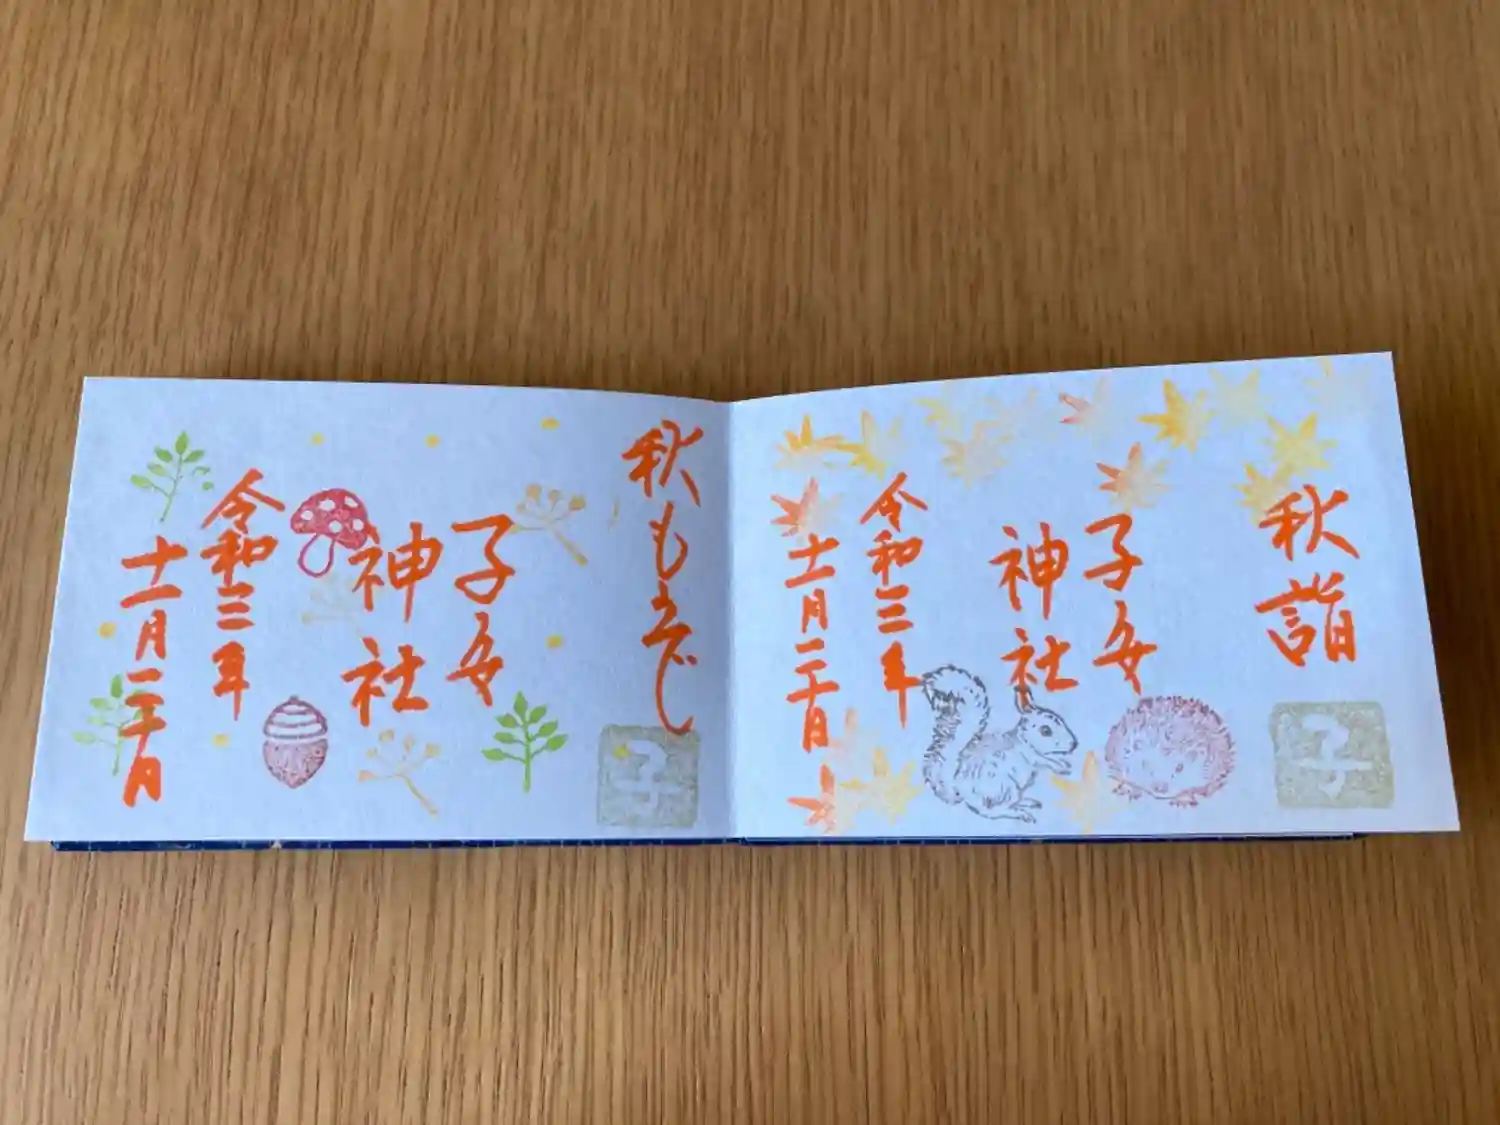 秋詣
子
子安
神社
令和三年
十一月二十日
秋もみじ
子
子安
神社
令和三年
十一月二十日